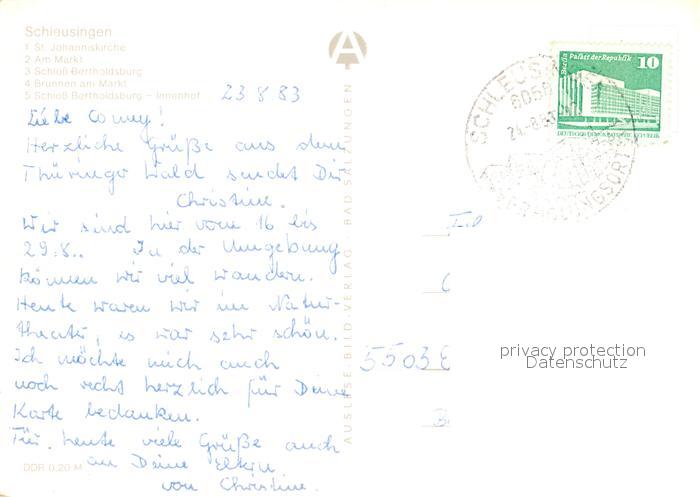 Schleusingen
1 St. Johanniskirche
2 Am Markt
3 Schloß Bertholdsburg
4 Brunnen am Markt
5 Schloß Bertholdsburg – Innenhof
23 8 83
Liebe Conny!
Herzliche Grüße aus dem
Thüringer Wald sendet Dir
Christine.
Wir sind hier vom 16 bis
29.8.. In der Umgebung
können wir viel wandern.
Heute waren wir im Natur-
theater, es war sehr schön.
Ich möchte mich auch
noch recht herzlich für Deine
Karte bedanken.
Für heute viele Grüße auch
an Deine Eltern
von Christine.
DDR 0,20 M
AUSLESE-BILD-VERLAG BAD SALZUNGEN
A
Berlin Palast der Republik
10
DEUTSCHE DEMOKRATISCHE REPUBLIK
SCHLEUSINGEN
6056
24.-8.83
ERHOLUNGSORT
5503
privacy protection
Datenschutz